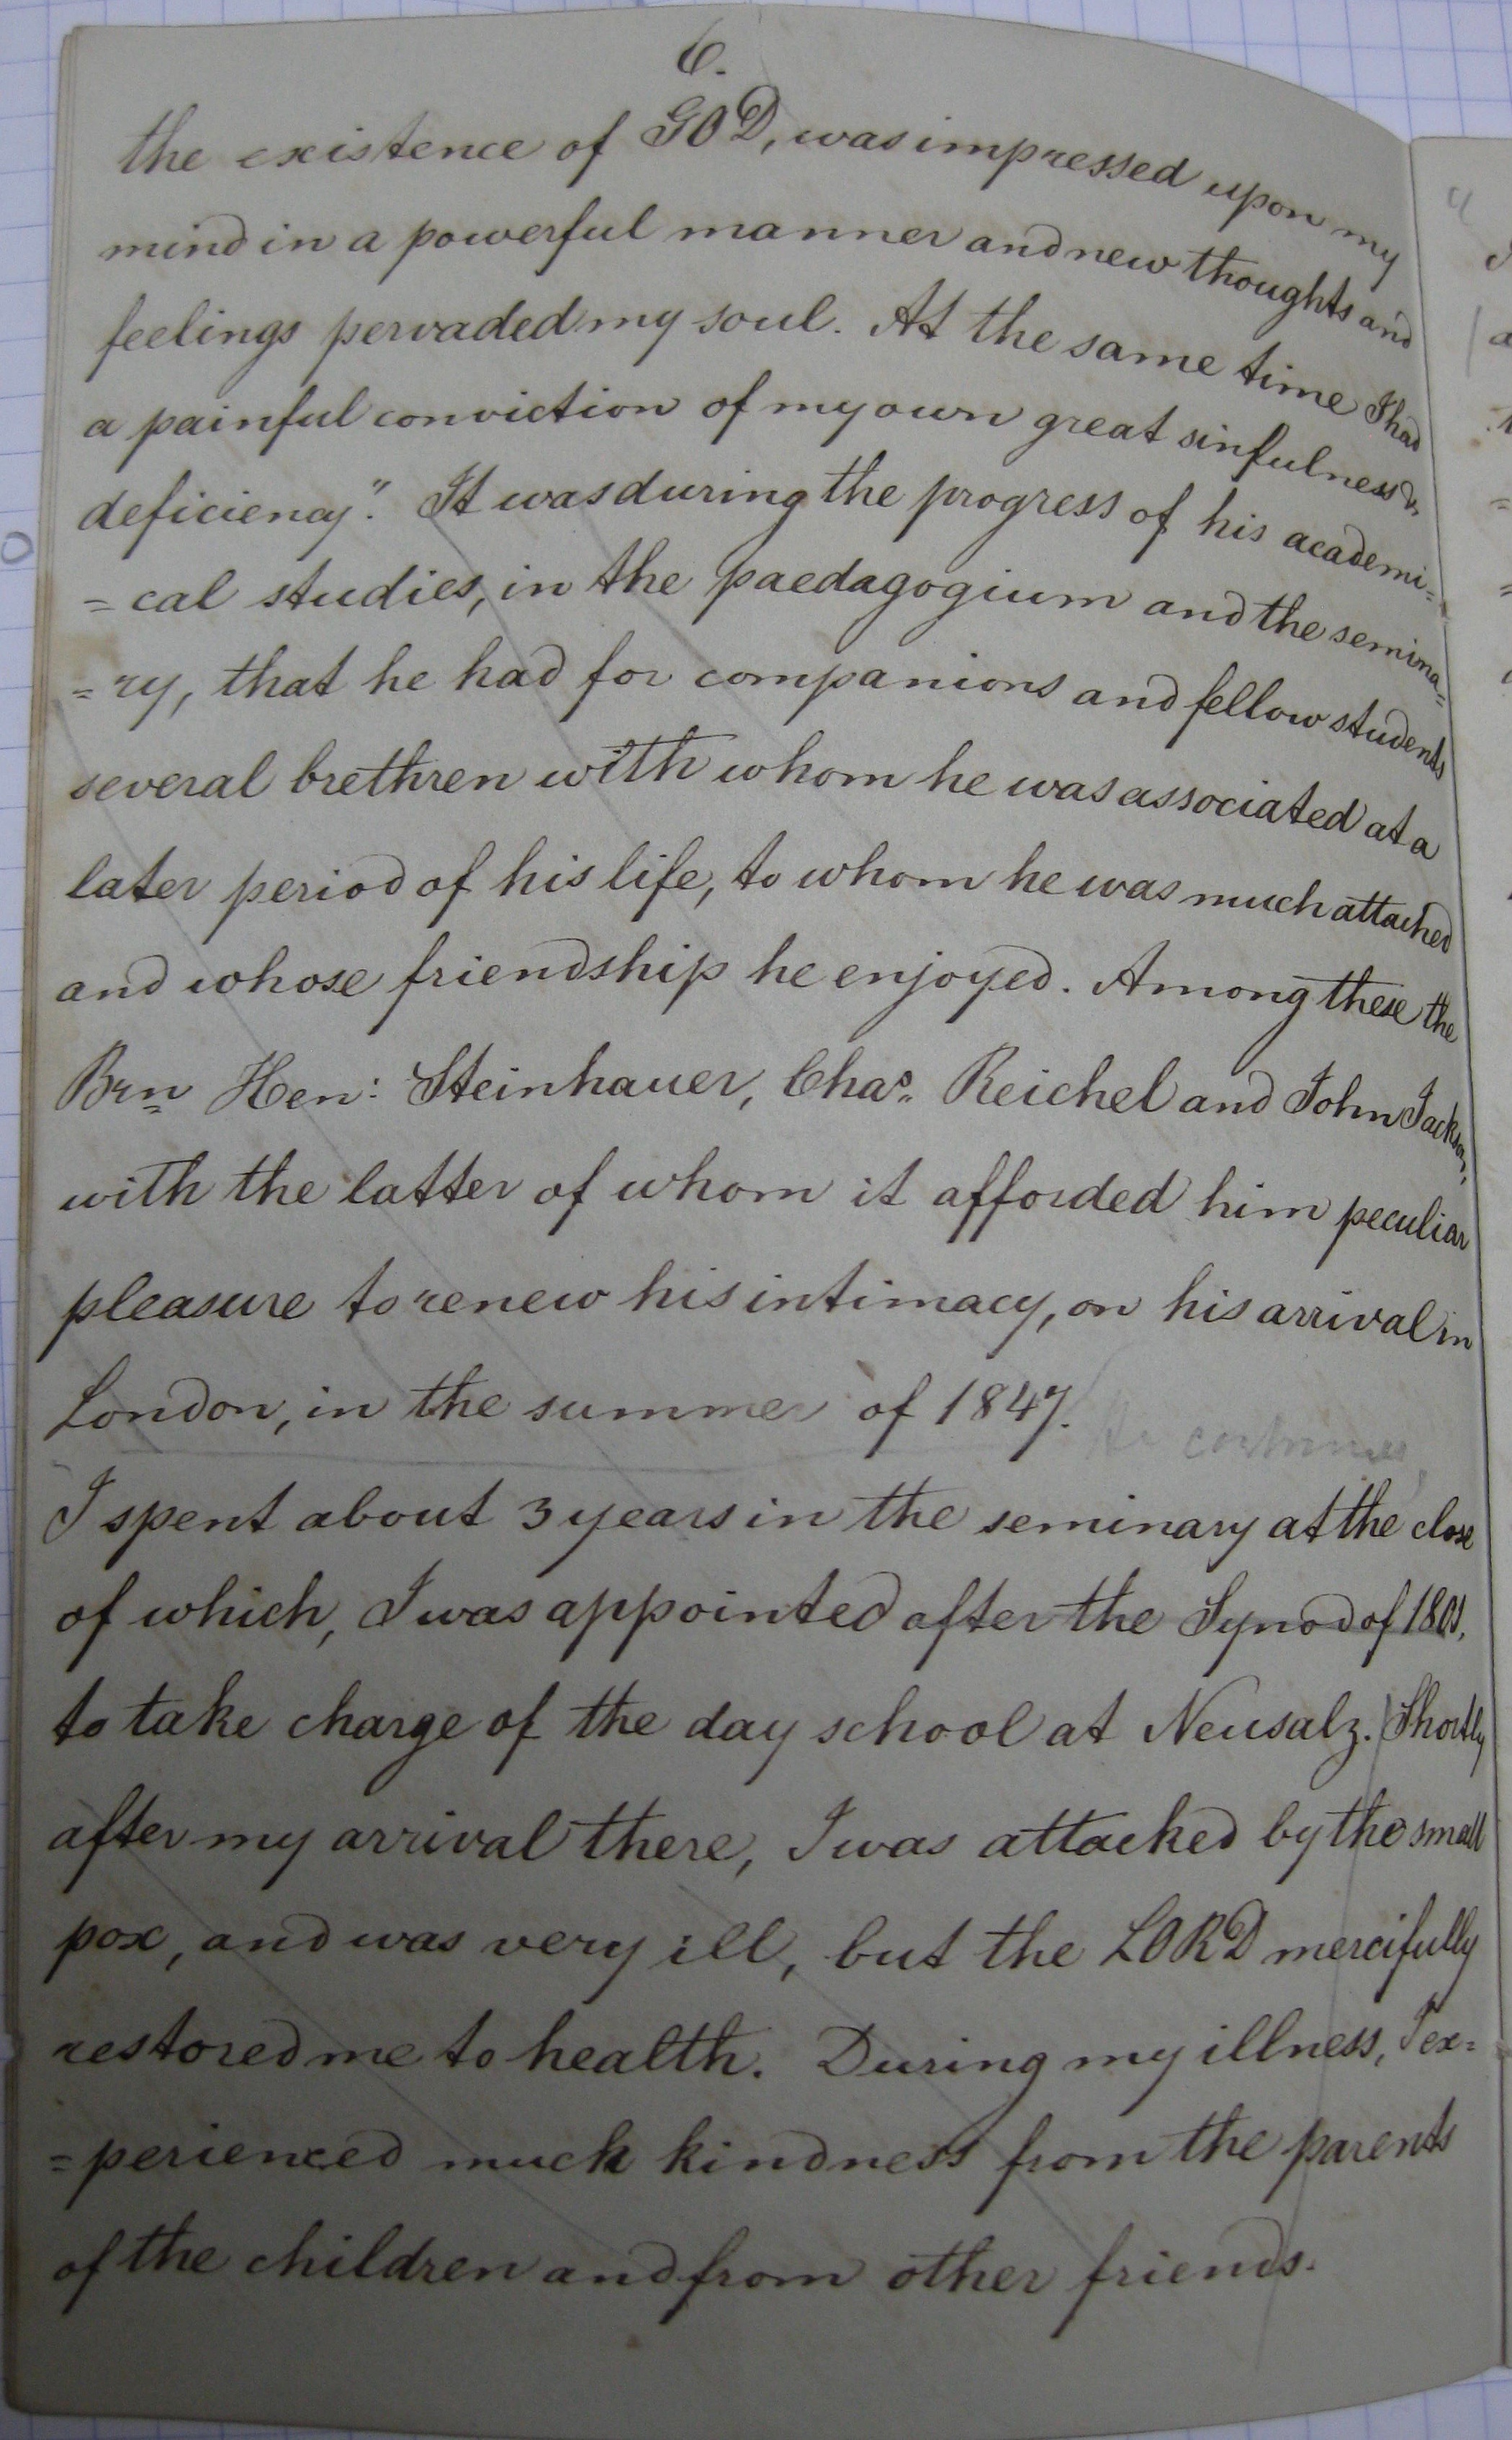 6.
the existence of GOD, was impressed upon my
mind in a powerful manner and new thoughts and
feelings pervaded my soul. At the same time I had
a painful conviction of my own great sinfulness &
deficiency." It was during the progress of his academi=
=cal studies, in the paedagogium and the semina=
=ry, that he had for companions and fellow students
several brethren with whom he was associated at a
later period of his life, to whom he was much attached
and whose friendship he enjoyed. Among these the
Brn Hen: Steinhauer, Chas. Reichel and John Jackson,
with the latter of whom it afforded him peculiar
pleasure to renew his intimacy, on his arrival in
London, in the summer of 1847.
continues
I spent about 3 years in the seminary at the close
of which, I was appointed after the Synod of 1801,
to take charge of the day school at Neusalz. Shortly
after my arrival there, I was attacked by the small
pox, and was very ill, but the LORD mercifully
restored me to health. During my illness, I ex=
=perienced much kindness from the parents
of the children and from other friends.